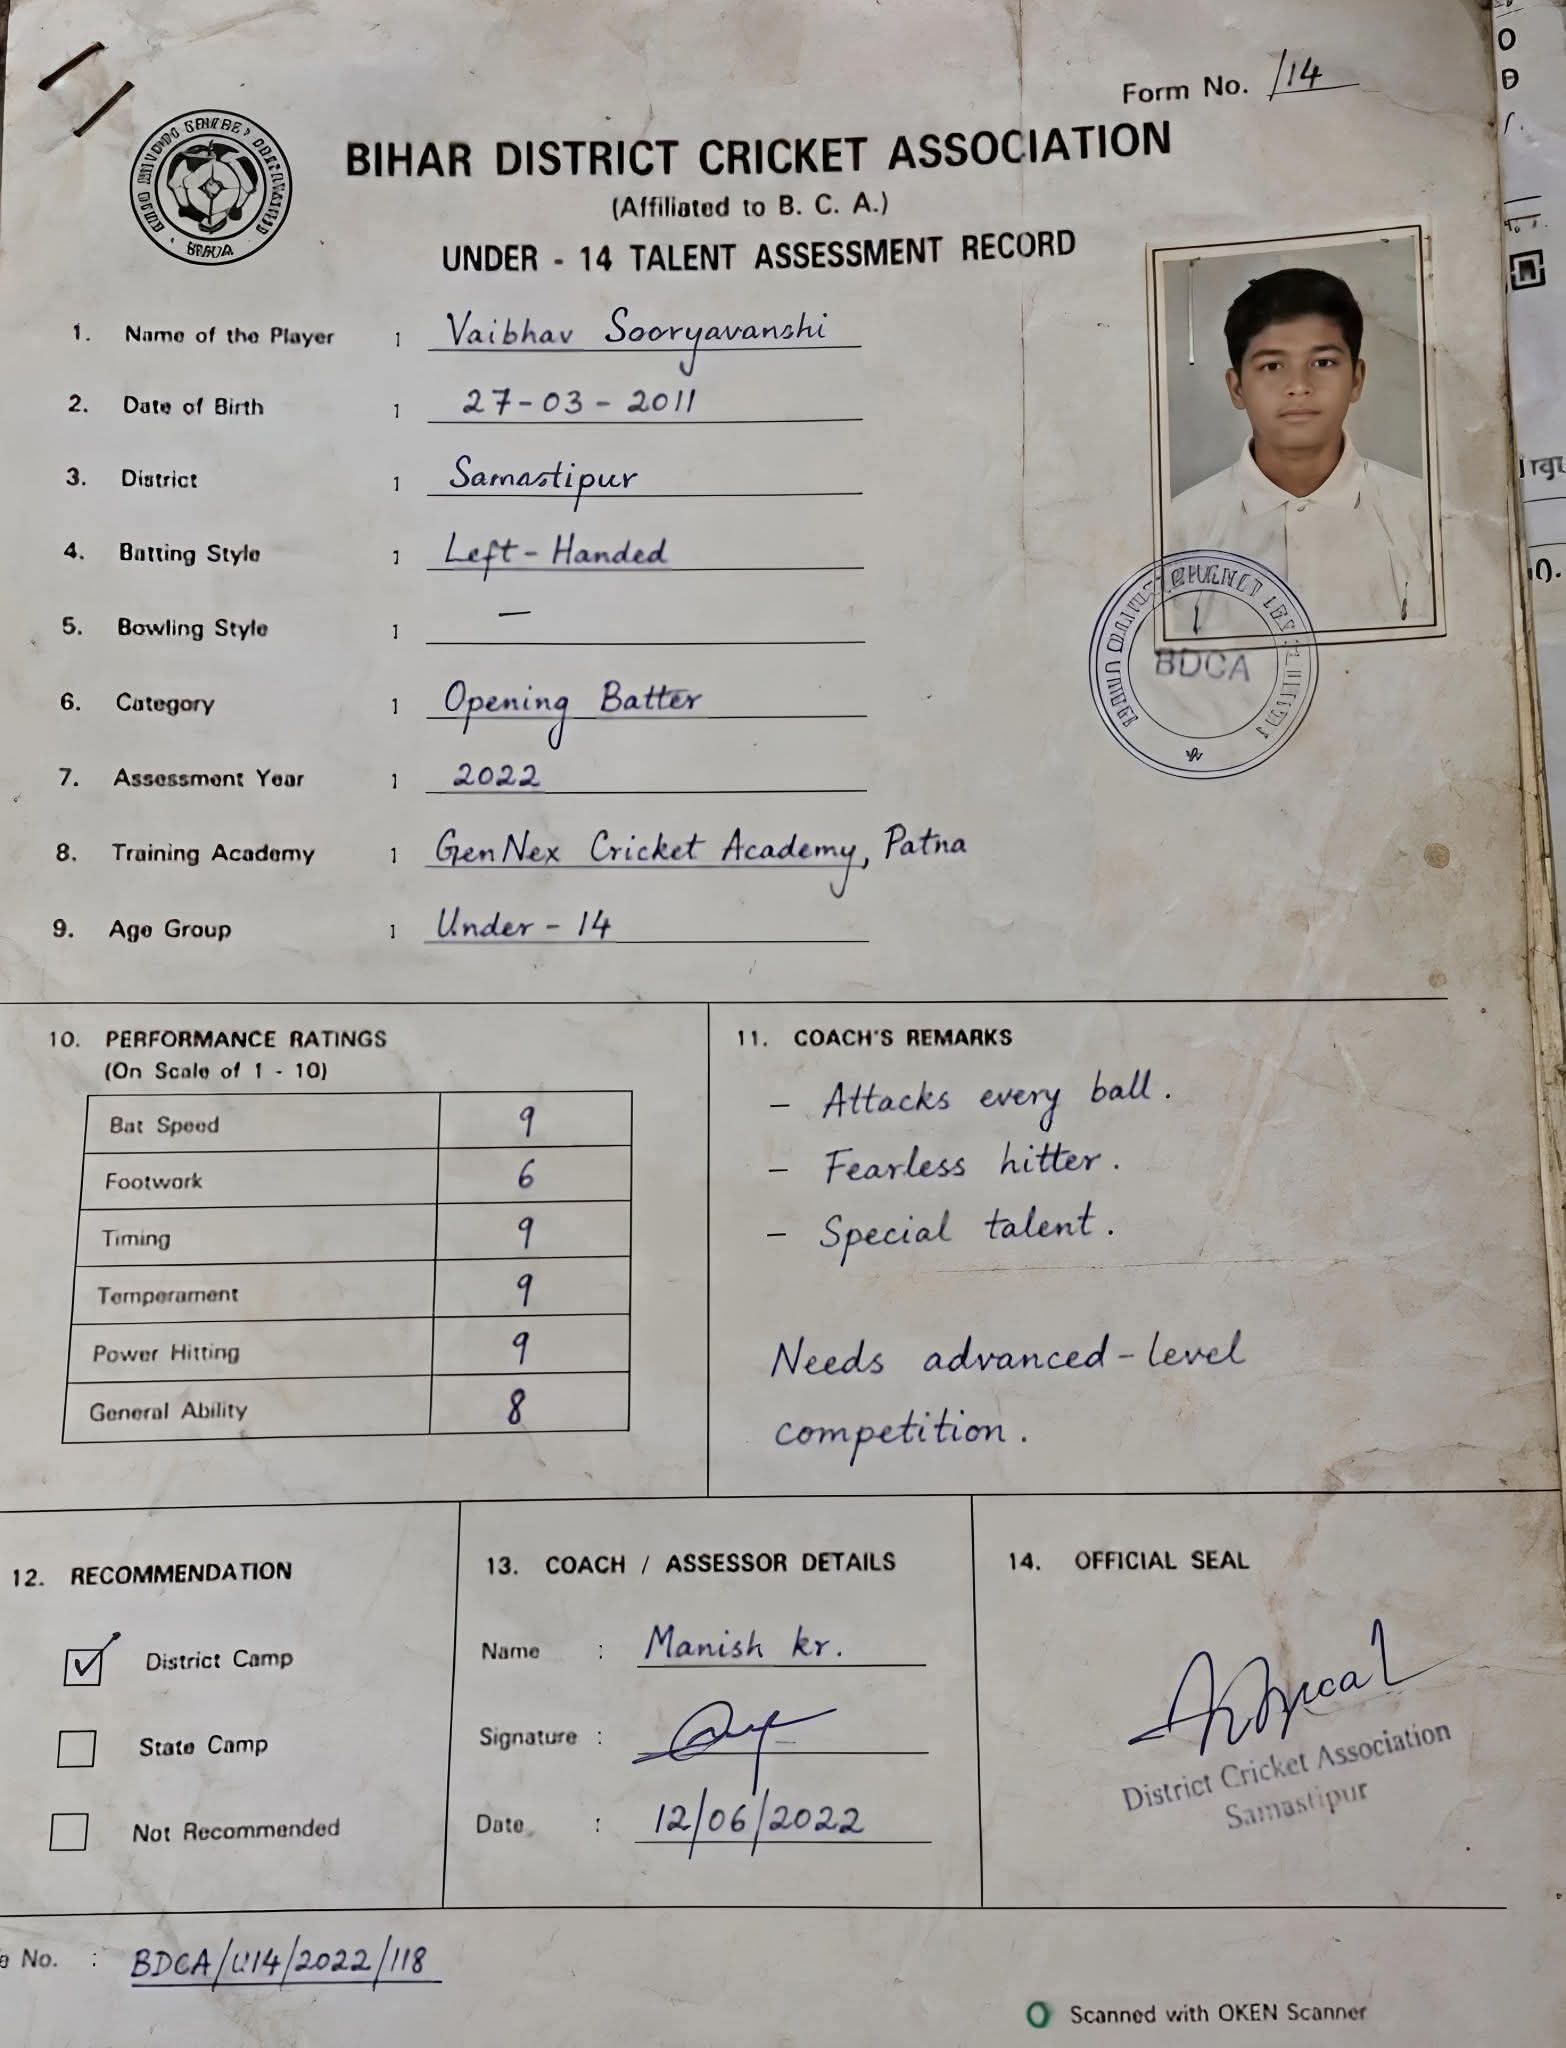 Form No. /14
BIHAR DISTRICT CRICKET ASSOCIATION
(Affiliated to B. C. A.)
UNDER - 14 TALENT ASSESSMENT RECORD
1. Name of the Player 1 Vaibhav Sooryavanshi
2. Date of Birth 1 27-03-2011
3. District 1 Samastipur
4. Batting Style 1 Left-Handed
5. Bowling Style 1 —
6. Category 1 Opening Batter
7. Assessment Year 1 2022
8. Training Academy 1 GenNex Cricket Academy, Patna
9. Age Group 1 Under-14
BDCA
10. PERFORMANCE RATINGS
(On Scale of 1 - 10)
Bat Speed 9
Footwork 6
Timing 9
Temperament 9
Power Hitting 9
General Ability 8
11. COACH'S REMARKS
- Attacks every ball.
- Fearless hitter.
- Special talent.
Needs advanced-level
competition.
12. RECOMMENDATION
District Camp
State Camp
Not Recommended
13. COACH / ASSESSOR DETAILS
Name : Manish kr.
Signature :
Date : 12/06/2022
14. OFFICIAL SEAL
District Cricket Association
Samastipur
No. : BDCA/U14/2022/118
Scanned with OKEN Scanner